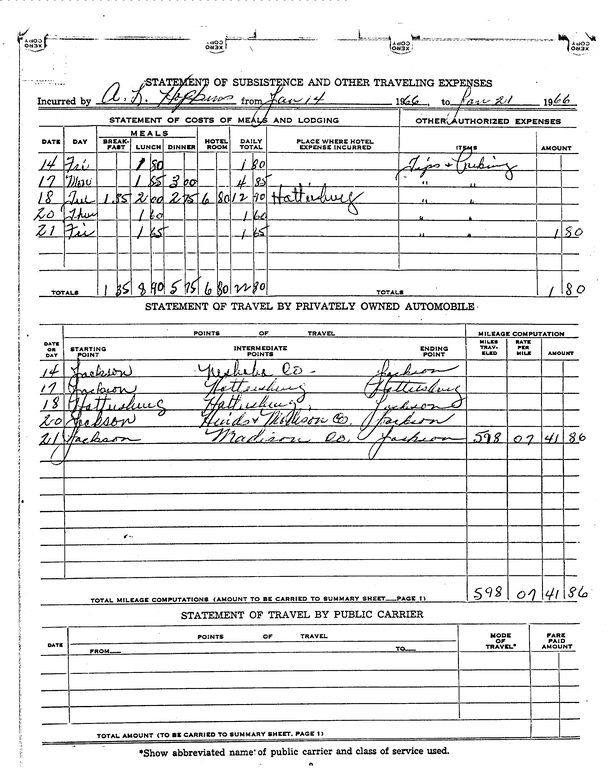 XEROX COPY XEROX COPY XEROX COPY XEROX COPY
STATEMENT OF SUBSISTENCE AND OTHER TRAVELING EXPENSES
Incurred by A. L. Hopkins from Jan 14 1966, to Jan 21 1966
STATEMENT OF COSTS OF MEALS AND LODGING OTHER AUTHORIZED EXPENSES
DATE DAY MEALS BREAK-FAST LUNCH DINNER HOTEL ROOM DAILY TOTAL PLACE WHERE HOTEL EXPENSE INCURRED ITEMS AMOUNT
14 Fri 1 80 1 80 Tips & Parking
17 Mon 1 85 3 00 4 85 " "
18 Tue 1.35 2 00 2 75 6 80 12 90 Hattiesburg " "
20 Thu 1 60 1 60 " "
21 Fri 1 65 1 65 " " 1 80
TOTALS 1 35 8 90 5 75 6 80 22 80 TOTALS 1 80
STATEMENT OF TRAVEL BY PRIVATELY OWNED AUTOMOBILE
DATE OR DAY POINTS OF TRAVEL MILEAGE COMPUTATION
STARTING POINT INTERMEDIATE POINTS ENDING POINT MILES TRAV-ELED RATE PER MILE AMOUNT
14 Jackson Neshoba Co - Jackson
17 Jackson Hattiesburg Hattiesburg
18 Hattiesburg Hattiesburg, Jackson
20 Jackson Hinds & Madison Co. Jackson
21 Jackson Madison Co. Jackson 598 07 41 86
TOTAL MILEAGE COMPUTATIONS (AMOUNT TO BE CARRIED TO SUMMARY SHEET PAGE 1) 598 07 41 86
STATEMENT OF TRAVEL BY PUBLIC CARRIER
DATE POINTS OF TRAVEL MODE OF TRAVEL* FARE PAID AMOUNT
FROM TO
TOTAL AMOUNT (TO BE CARRIED TO SUMMARY SHEET, PAGE 1)
*Show abbreviated name of public carrier and class of service used.